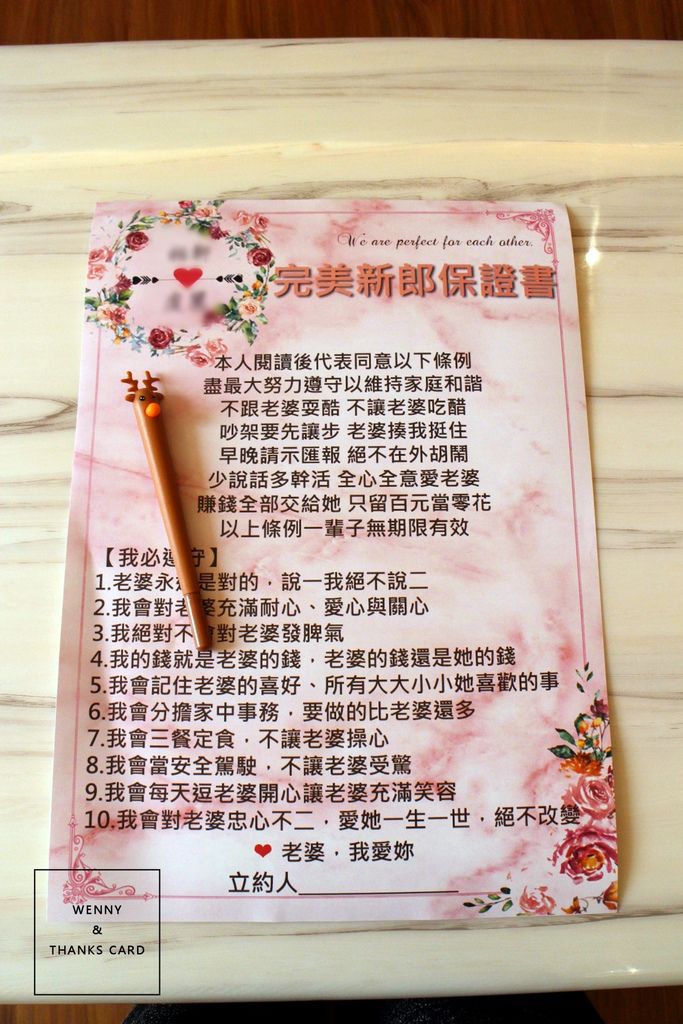 We are perfect for each other.
完美新郎保證書
本人閱讀後代表同意以下條例
盡最大努力遵守以維持家庭和諧
不跟老婆耍酷 不讓老婆吃醋
吵架要先讓步 老婆揍我挺住
早晚請示匯報 絕不在外胡鬧
少說話多幹活 全心全意愛老婆
賺錢全部交給她 只留百元當零花
以上條例一輩子無期限有效
【我必遵守】
1.老婆永遠是對的，說一我絕不說二
2.我會對老婆充滿耐心、愛心與關心
3.我絕對不會對老婆發脾氣
4.我的錢就是老婆的錢，老婆的錢還是她的錢
5.我會記住老婆的喜好、所有大大小小她喜歡的事
6.我會分擔家中事務，要做的比老婆還多
7.我會三餐定食，不讓老婆操心
8.我會當安全駕駛，不讓老婆受驚
9.我會每天逗老婆開心讓老婆充滿笑容
10.我會對老婆忠心不二，愛她一生一世，絕不改變
❤ 老婆，我愛妳
立約人
WENNY
&
THANKS CARD